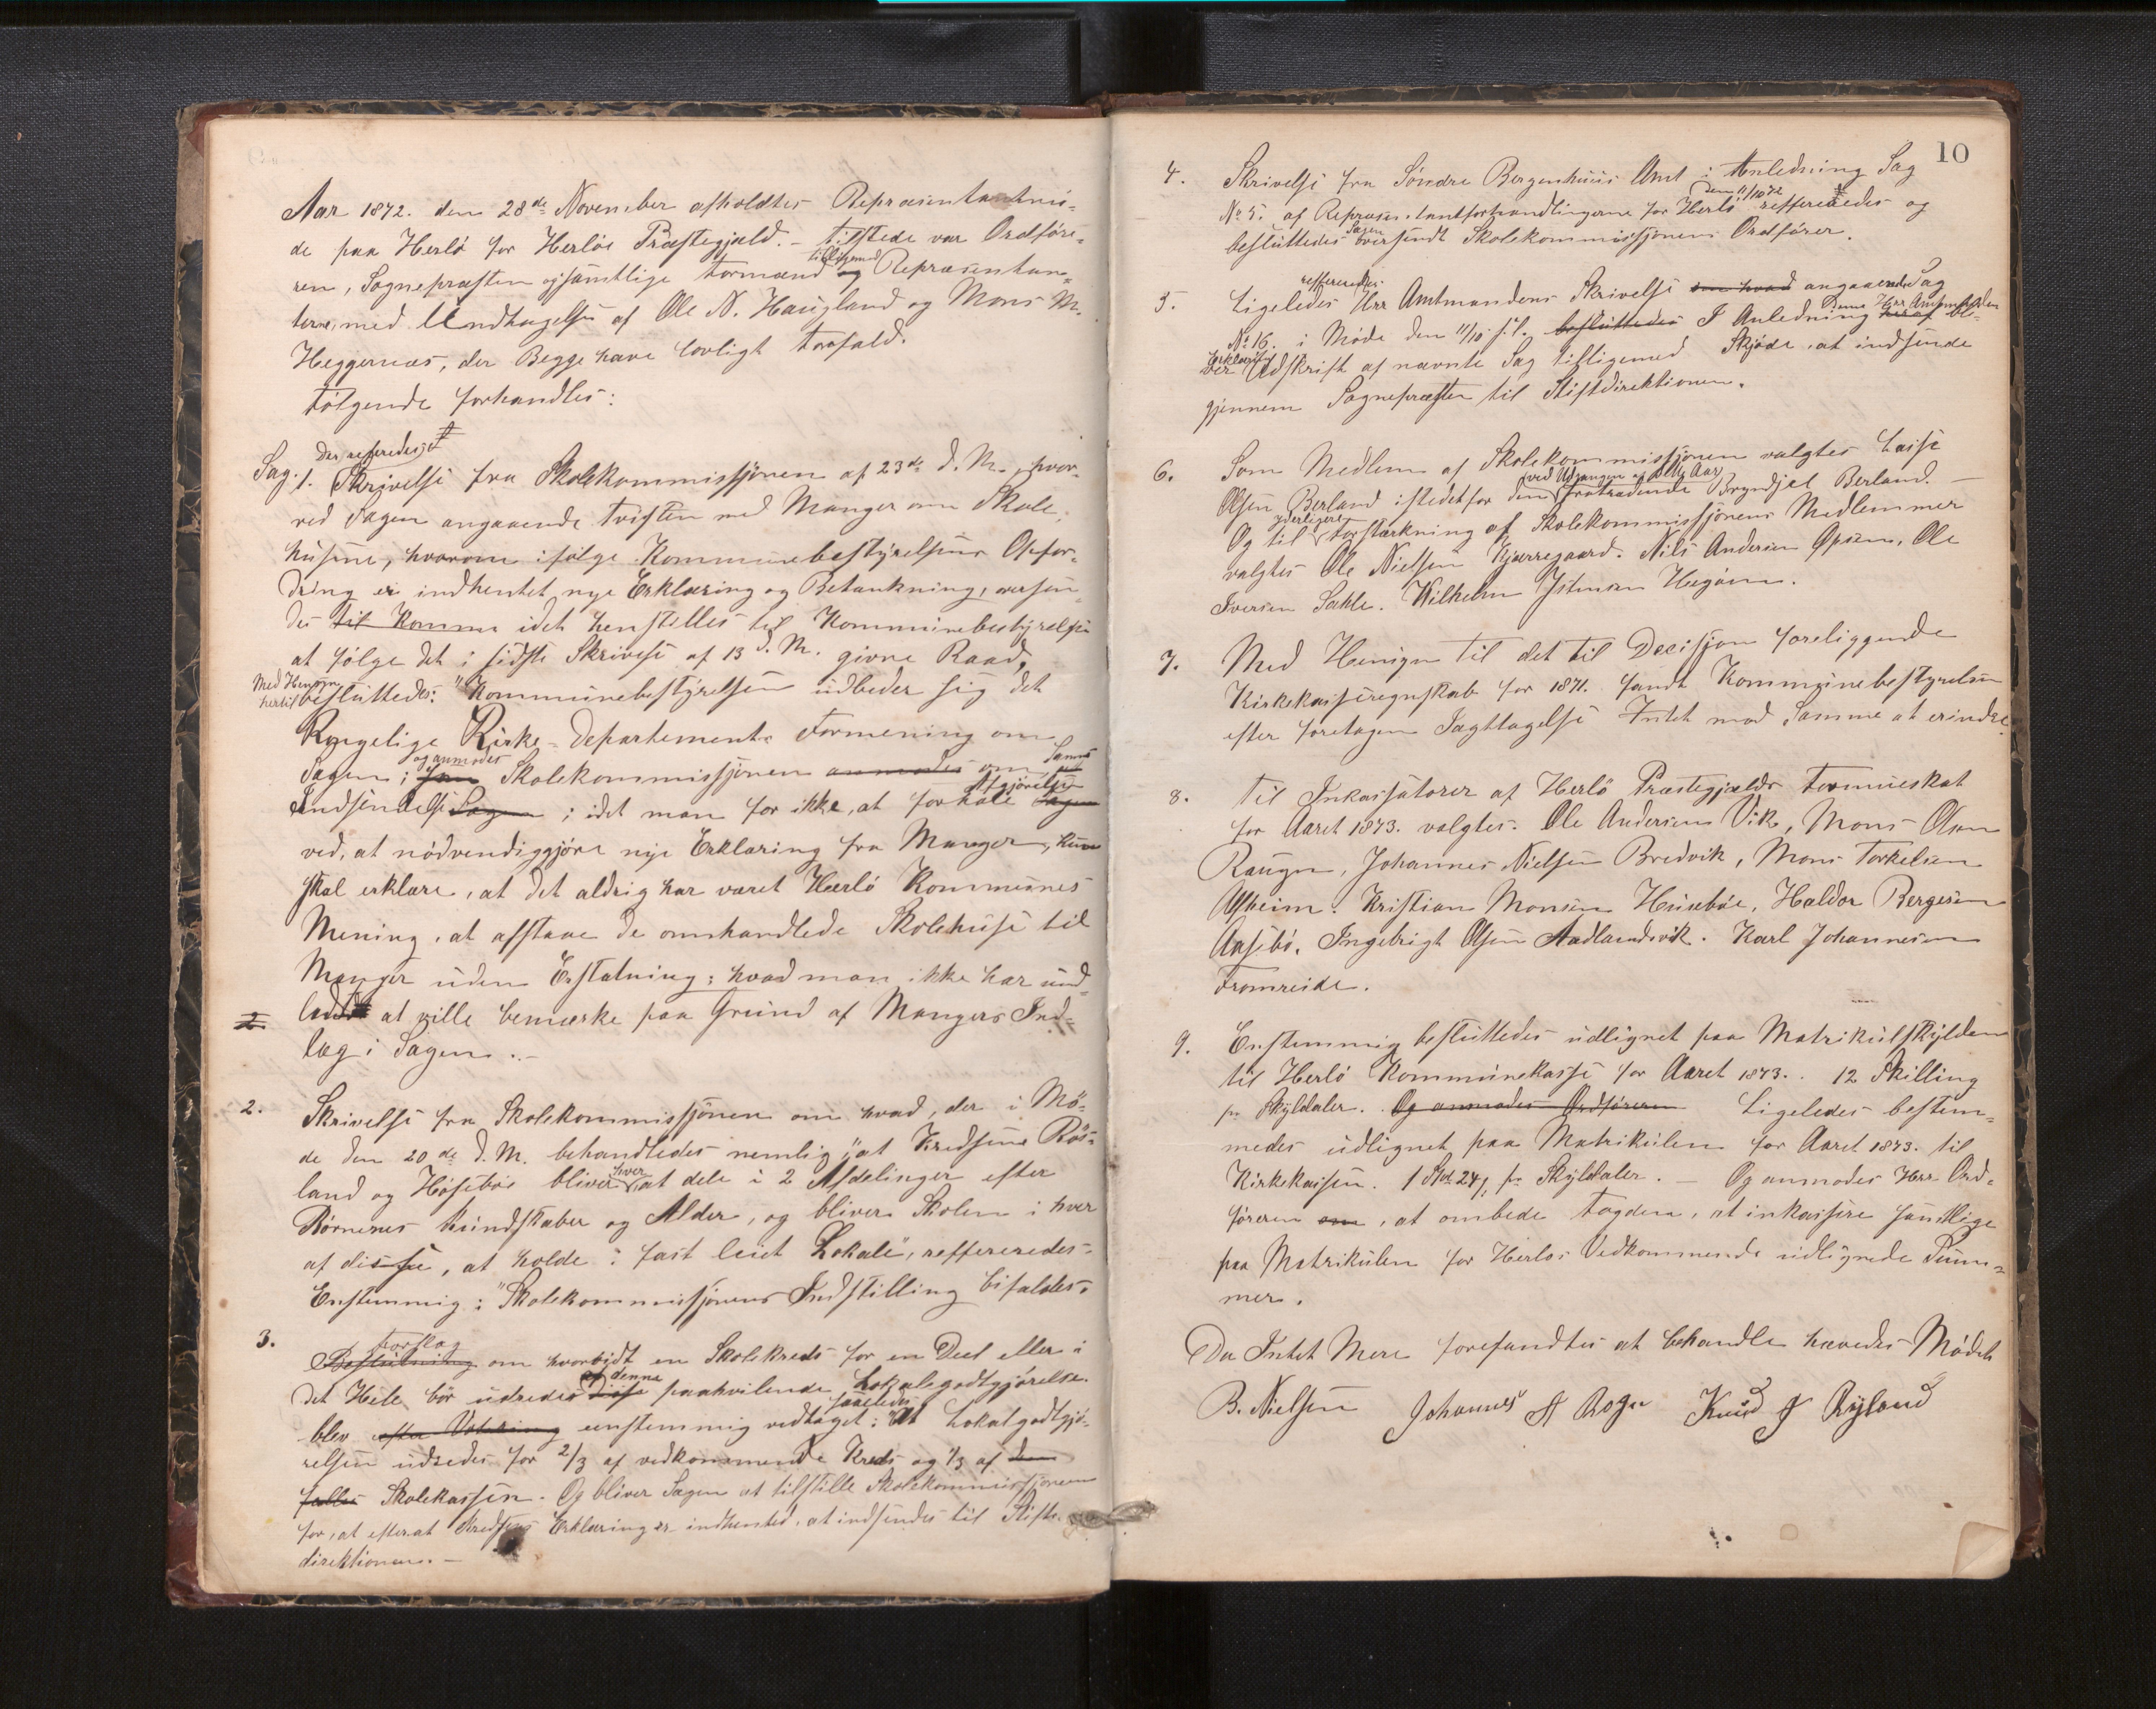 Aar 1872. den 28de November afholdtes Repræsentantmö-
de paa Herlö for Herlöe Præstegjæld. - Tilstede var Ordföre-
ren, Sognepræsten og samtlige Formænd tilligemed og Repræsentan-
terne, med Undtagelse af Ole N. Haugland og Mons M.
Heggernæs, der Begge have lovligt Forfald.
Følgende forhandles:
Der referedes
Sag. 1. Skrivelse fra Skolekommissjönen af 23de d. M., hvor-
ved Sagen angaaende Tvisten med Manger om Skole-
husene, hvorom ifølge Kommunebestyrelsens Opfor-
dring er indhentet nye Erklæring og Betænkning, oversen-
des til Komm idet henstilles til Kommunebestyrelsen
at følge det i sidste Skrivelse af 13 d. M. givne Raad,
Med Hensyn hertil besluttedes: "Kommunebestyrelsen udbeder sig det
Kongelige Kirke-Departements Formening om
Sagen; og anmodes Skolekommissjönen anmodes om Samms
Indsendelse Sagen; idet man for ikke, at forhale Afgjörelsen Sagen
ved, at nödvendiggjöre nye Erklæring fra Manger, kun
skal erklære, at det aldrig har været Herlö Kommunes
Mening, at afstaae de omhandlede Skolehuse til
Manger uden Erstatning; hvad man ikke har und-
2 ladt at ville bemærke paa Grund af Mangers Ind-
læg i Sagen. -
2. Skrivelse fra Skolekommissjönen om hvad, der i Mö-
de den 20de d. M. behandledes nemlig "at Kredsene Ros-
land og Höseböe bliver hver at dele i 2 Afdelinger efter
Börnenes Kundskaber og Alder, og bliver Skolen i hver
af disse, at holde i fast leiet Lokale", reffereredes.
Enstemmig: "Skolekommissjönens Indstilling bifaldes.
3. Forslag
Beslutning om hvorvidt en Skolekreds for en Deel eller i
det Hele bör udredes af denne paahvilende Lokalegodtgjörelse.
blev efter Votering eenstemmig vedtaget saaledes: At Lokalgodtgjö-
relsen udredes for 2/3 af vedkommende Kreds og 1/3 af den
fælles Skolekassen. Og bliver Sagen at tilstille Skolekommissjonen
for, at efterat Kredsens Erklæring er indhentet, at indsendes til Stifts-
direktionen. -
10
4. Skrivelse fra Söndre Bergenhuus Amt i Anledning Sag
No 5. af Repræsentantforhandlingerne for Herlö den 11/10 72 reffereredes og
besluttedes Sagen oversendt Skolekommissjonens Ordförer.
5. Ligeledes reffereredes Hrr Amtmandens Skrivelse om hvad angaaende Sag
No 16. i Möde den 11/10 f. l. besluttedes I Anledning heraf Hrr Amtmanden bli-
ver Udskrift af nævnte Sag tilligemed Skjöde, at indsende
gjennem Sognepræsten til Stiftdirektionen.
6. Som Medlem af Skolekommissjonen valgtes Lasse
Olsen Berland istedetfor den ved Udgangen af dette Aar fratrædende Bryndjel Berland. -
Og til yderligere Forstærkning af Skolekommissjonens Medlemmer
valgtes Ole Nielsen Kjærregaard. Nils Andersen Opsen, Ole
Iversen Sæhle. Wilhelm Hegöen.
7. Med Hensyn til det til Decisjon foreliggende
Kirkekasseregnskab for 1871. fandt Kommunebestyrelsen
efter foretagen Iagttagelse Intet mod Samme at erindre.
8. Til Inkassatorer af Herlö Præstegjelds Formueskat
for Aaret 1873. valgtes. Ole Andersen Vik, Mons Olsen
Raugn, Johannes Nielsen Bredvik, Mons Torkelsen
Alfheim. Kristian Monsen Huseböe, Haldor Bergesen
Aasebö. Ingebrigt Olsen Aadlandsvik. Karl Johannesen
Fromreide.
9. Enstemmig besluttedes udlignet paa Matrikülskylden
til Herlö Kommunekasse for Aaret 1873. 12 Skilling
pr. Skyldaler. Og anmodes Ordföreren Ligeledes bestem-
medes udlignet paa Matrikulen for Aaret 1873. til
Kirkekassen. 1 Skl 24/, pr. Skyldaler. - Og anmodes Hrr. Ord-
föreren om, at ombede Fogden, at inkassere samtlige
paa Matrikulen for Herlös Vedkommende udlignede Sum-
mer.
Da Intet Mere forefandtes at behandle hævedes Mödet
B. Nielsen Johannes A Rogn Knud J Ryland